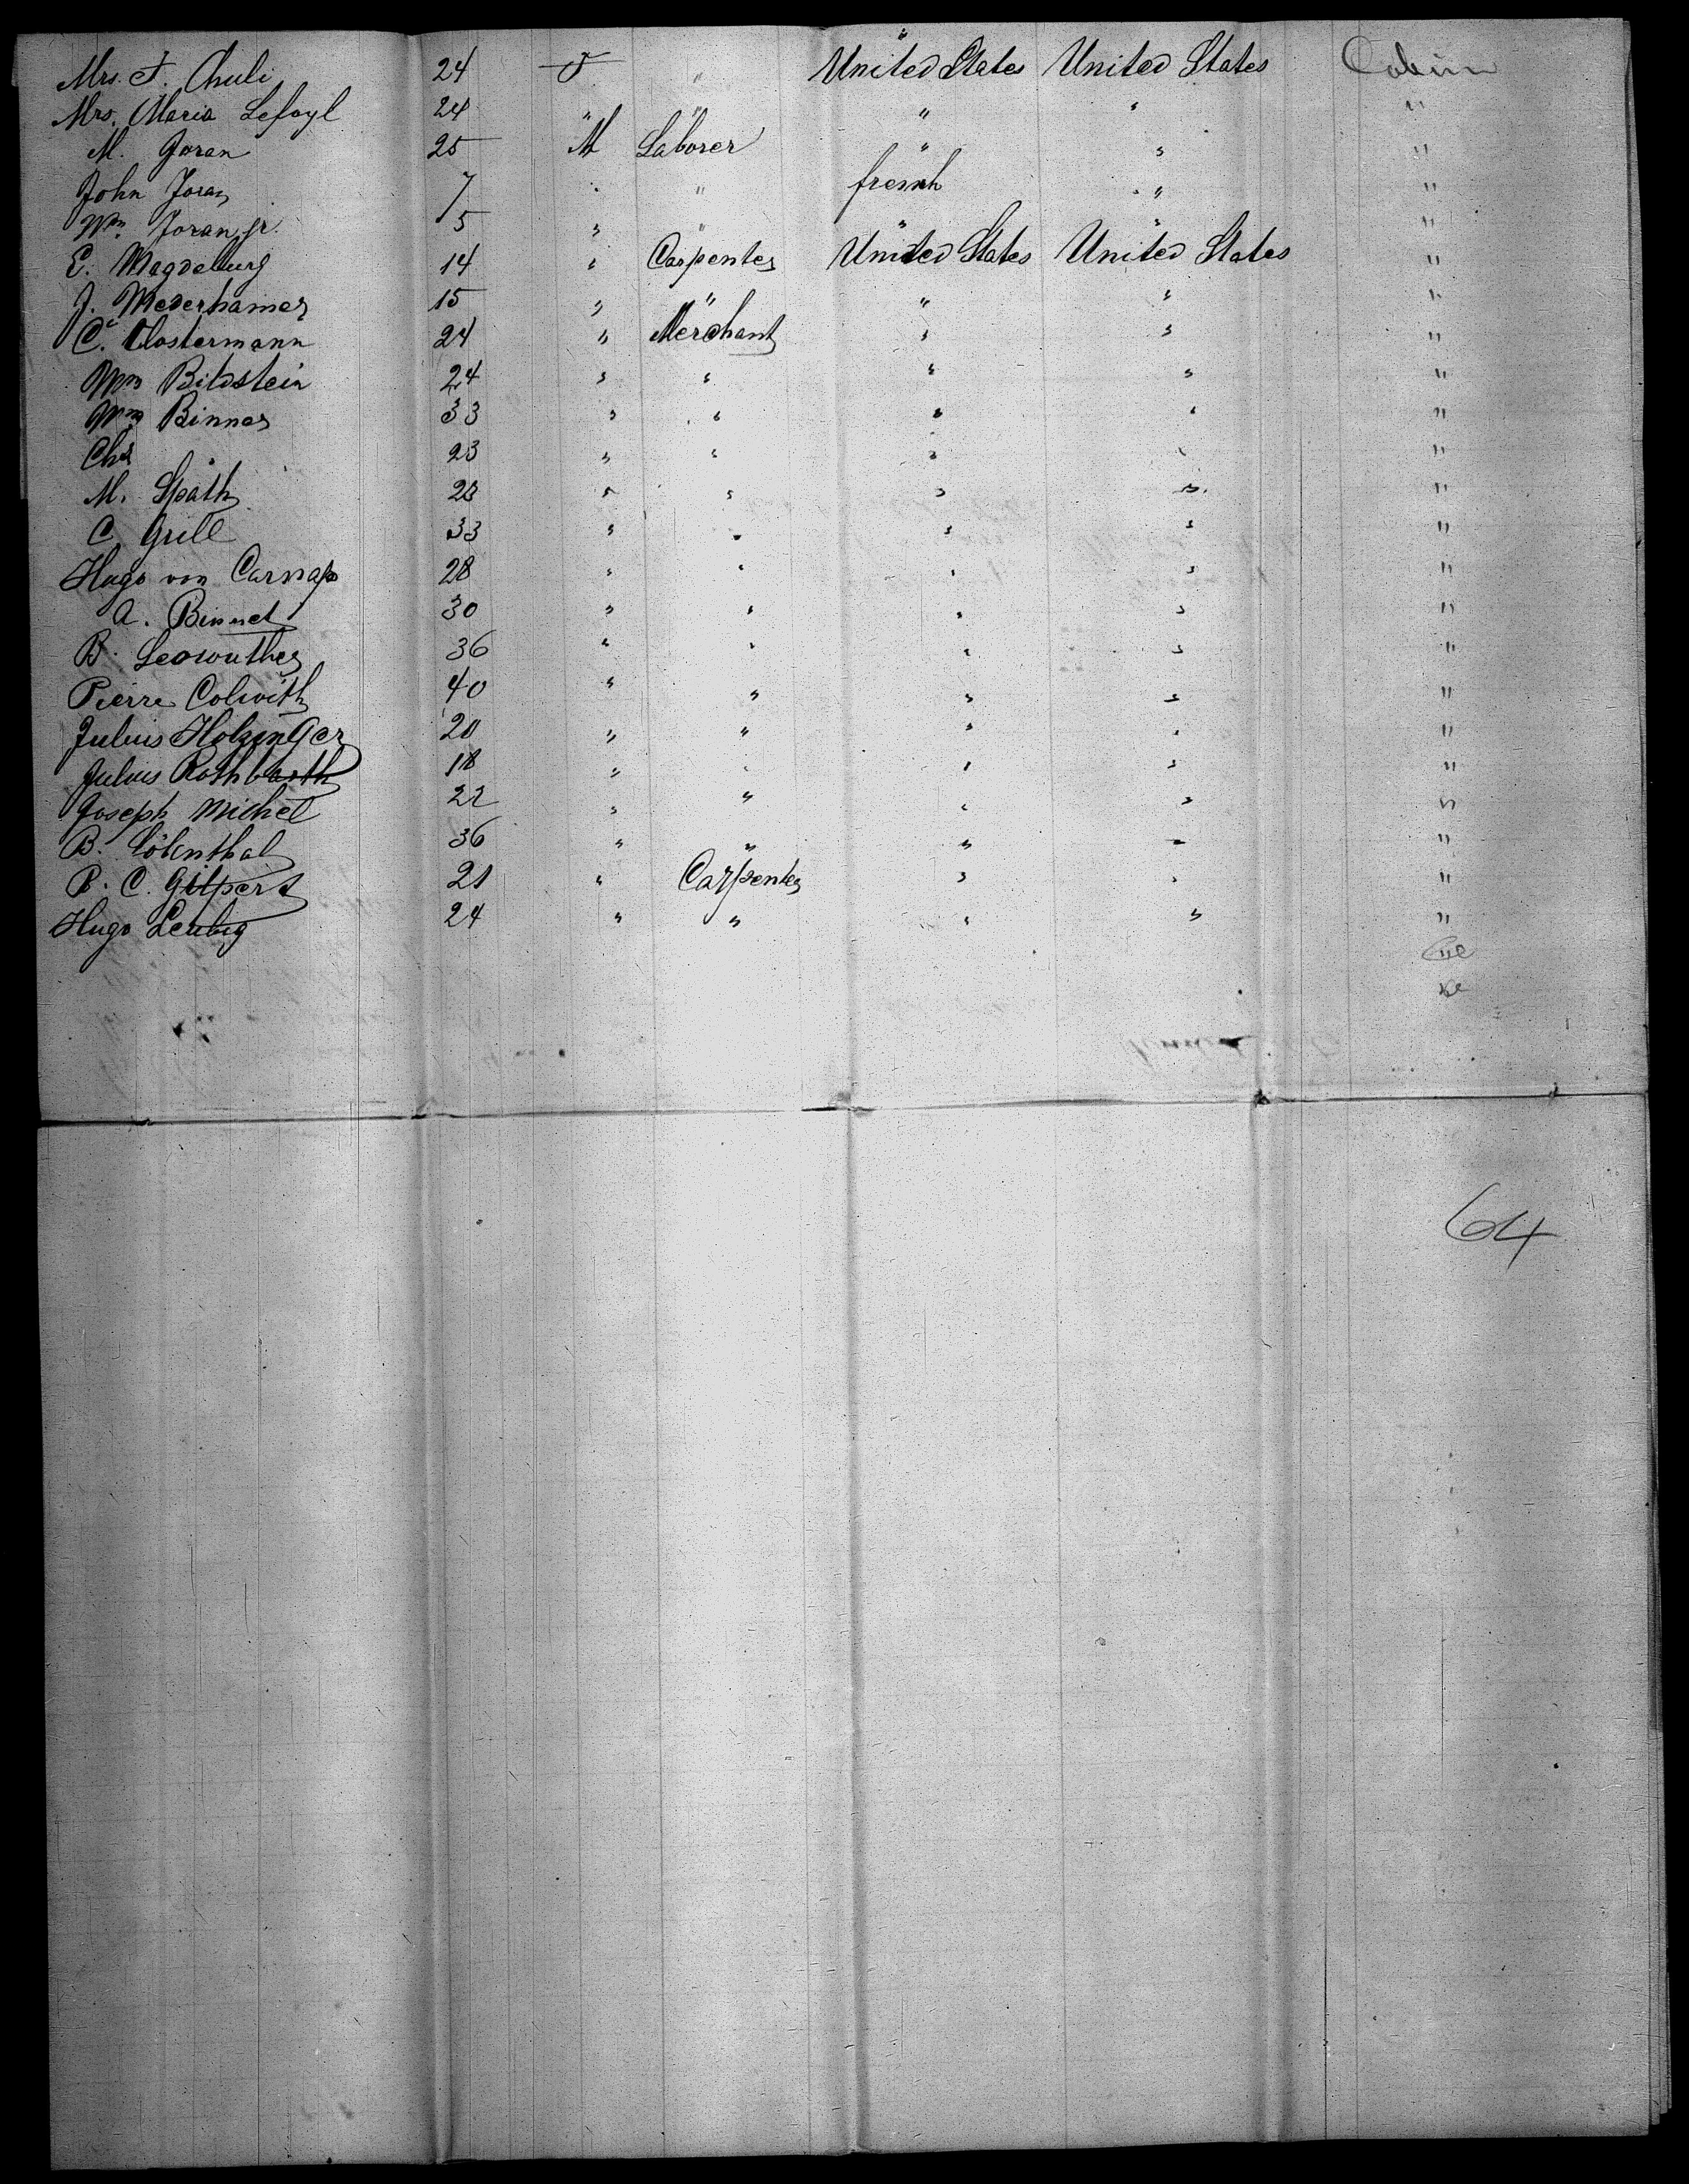 Mrs. F. Chuli 24 F " United States United States Cabin
Mrs. Maria Lefoyl 24 " " " " "
M. Joran 25 M Laborer " " "
John Joran 7 " " french " "
Wm. Joran jr. 5 " " " " "
E. Magdeburg 14 " Carpenter United States United States "
J. Mederhamer 15 " " " " "
C. Clostermann 24 " Merchant " " "
Wm Bildstein 24 " " " " "
Wm Binner 33 " " " " "
Chs 23 " " " " "
M. Späth 28 " " " " "
C. Grill 33 " " " " "
Hugo von Carnap 28 " " " " "
A. Binnet 30 " " " " "
B. 36 " " " " "
Pierre Colwith 40 " " " " "
Julius Holzinger 20 " " " " "
Julius Rothbarth 18 " " " " "
Joseph Michel 22 " " " " "
B. Löbenthal 36 " " " " "
B. C. Gilpert 21 " Carpenter " " "
Hugo Leubig 24 " " " " "
64